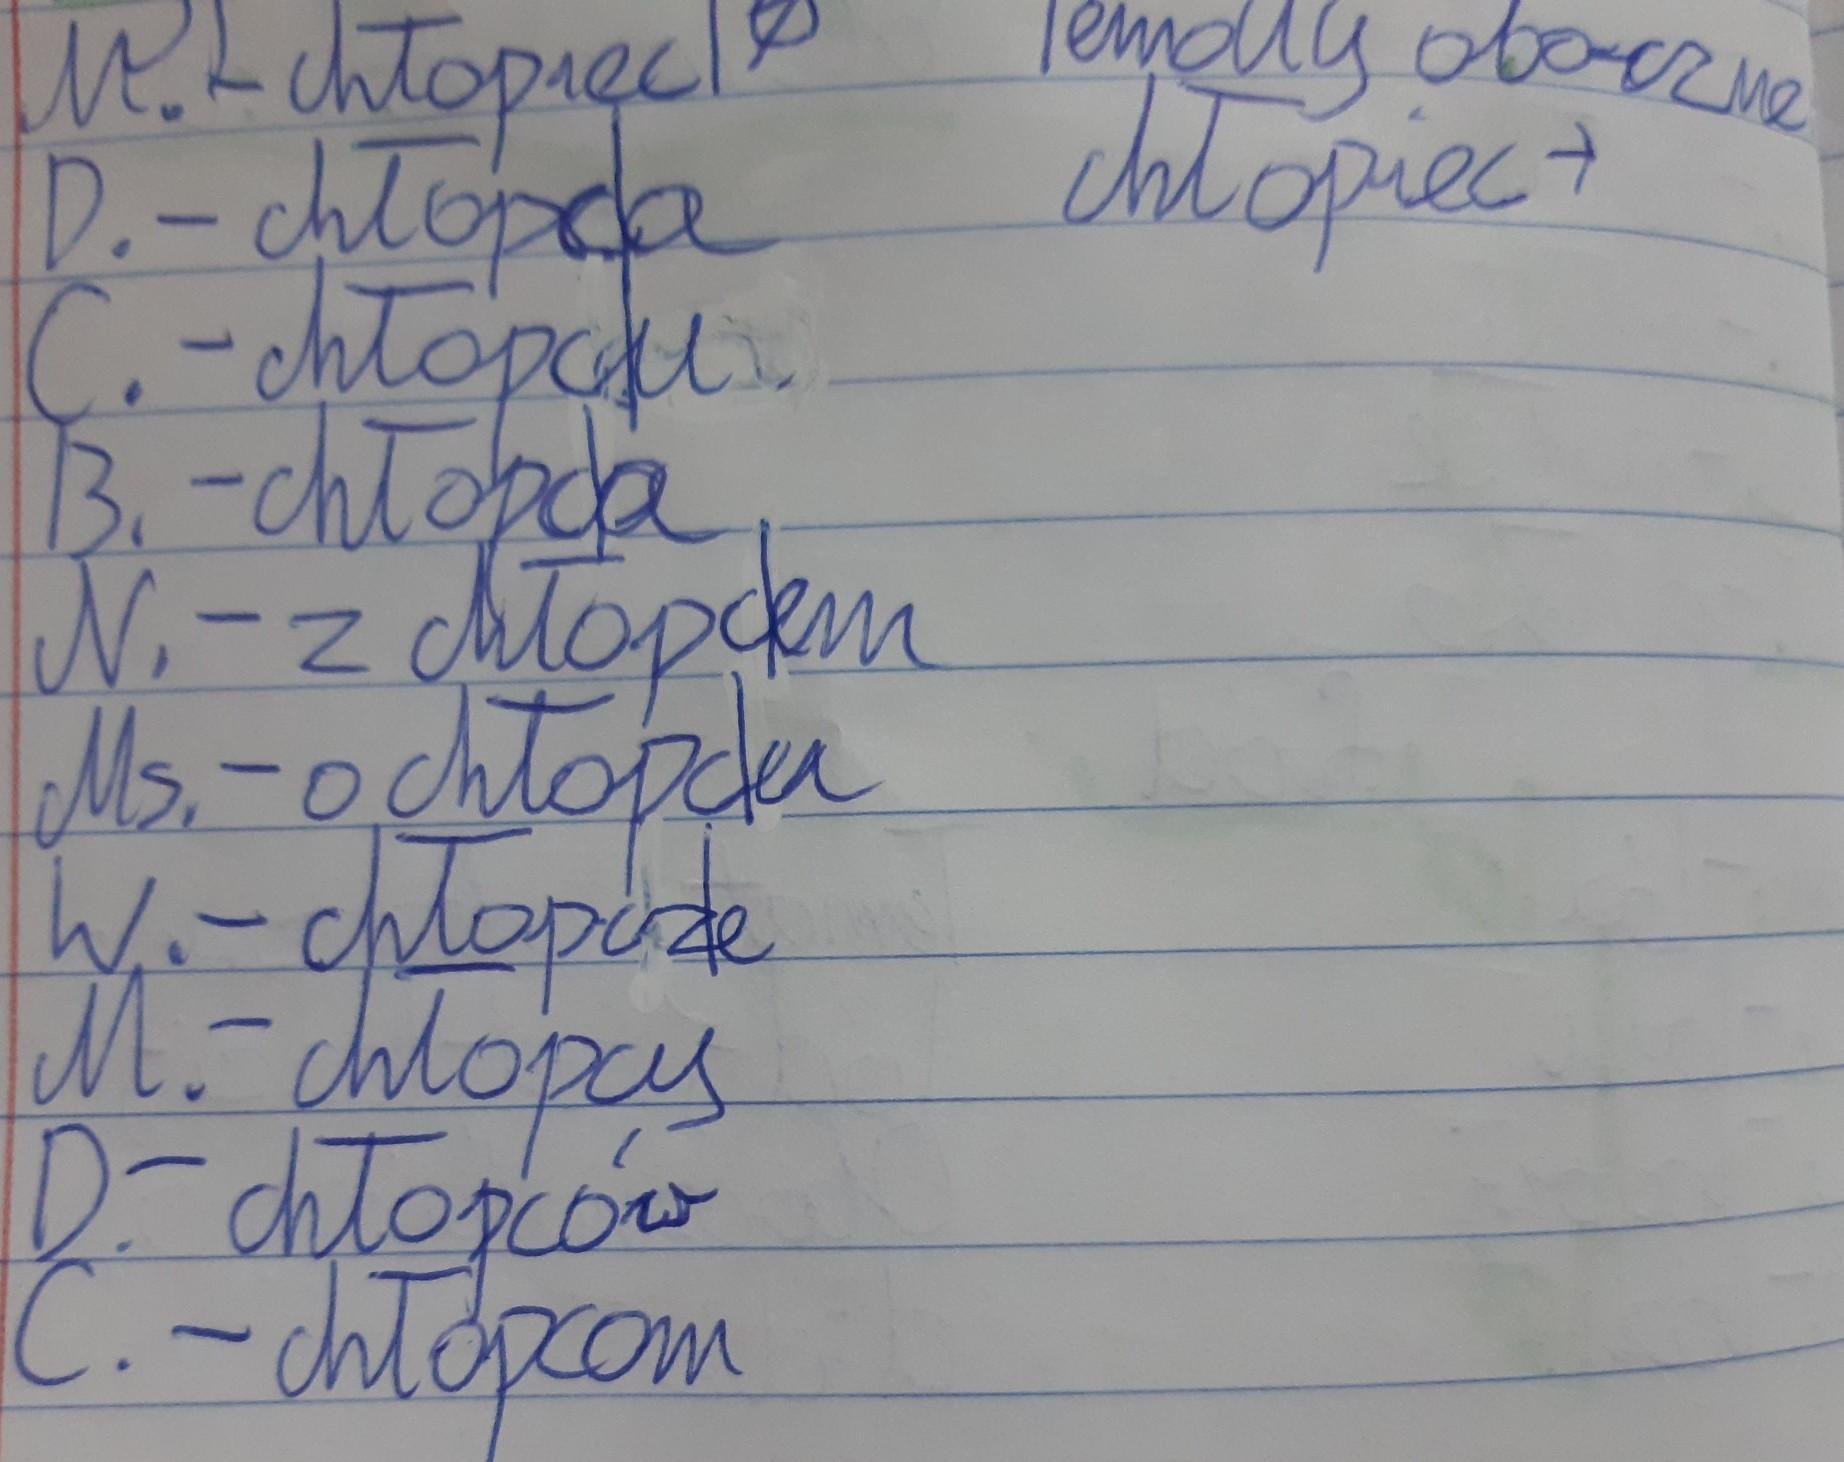 M. - chłopiec|ø
D. - chłopc|a
C. - chłopc|u
B. - chłopc|a
N. - z chłopc|em
Ms. - o chłopc|u
W. - chłopcz|e
M. - chłopcy
D. - chłopców
C. - chłopcom
Tematy oboczne
chłopiec+